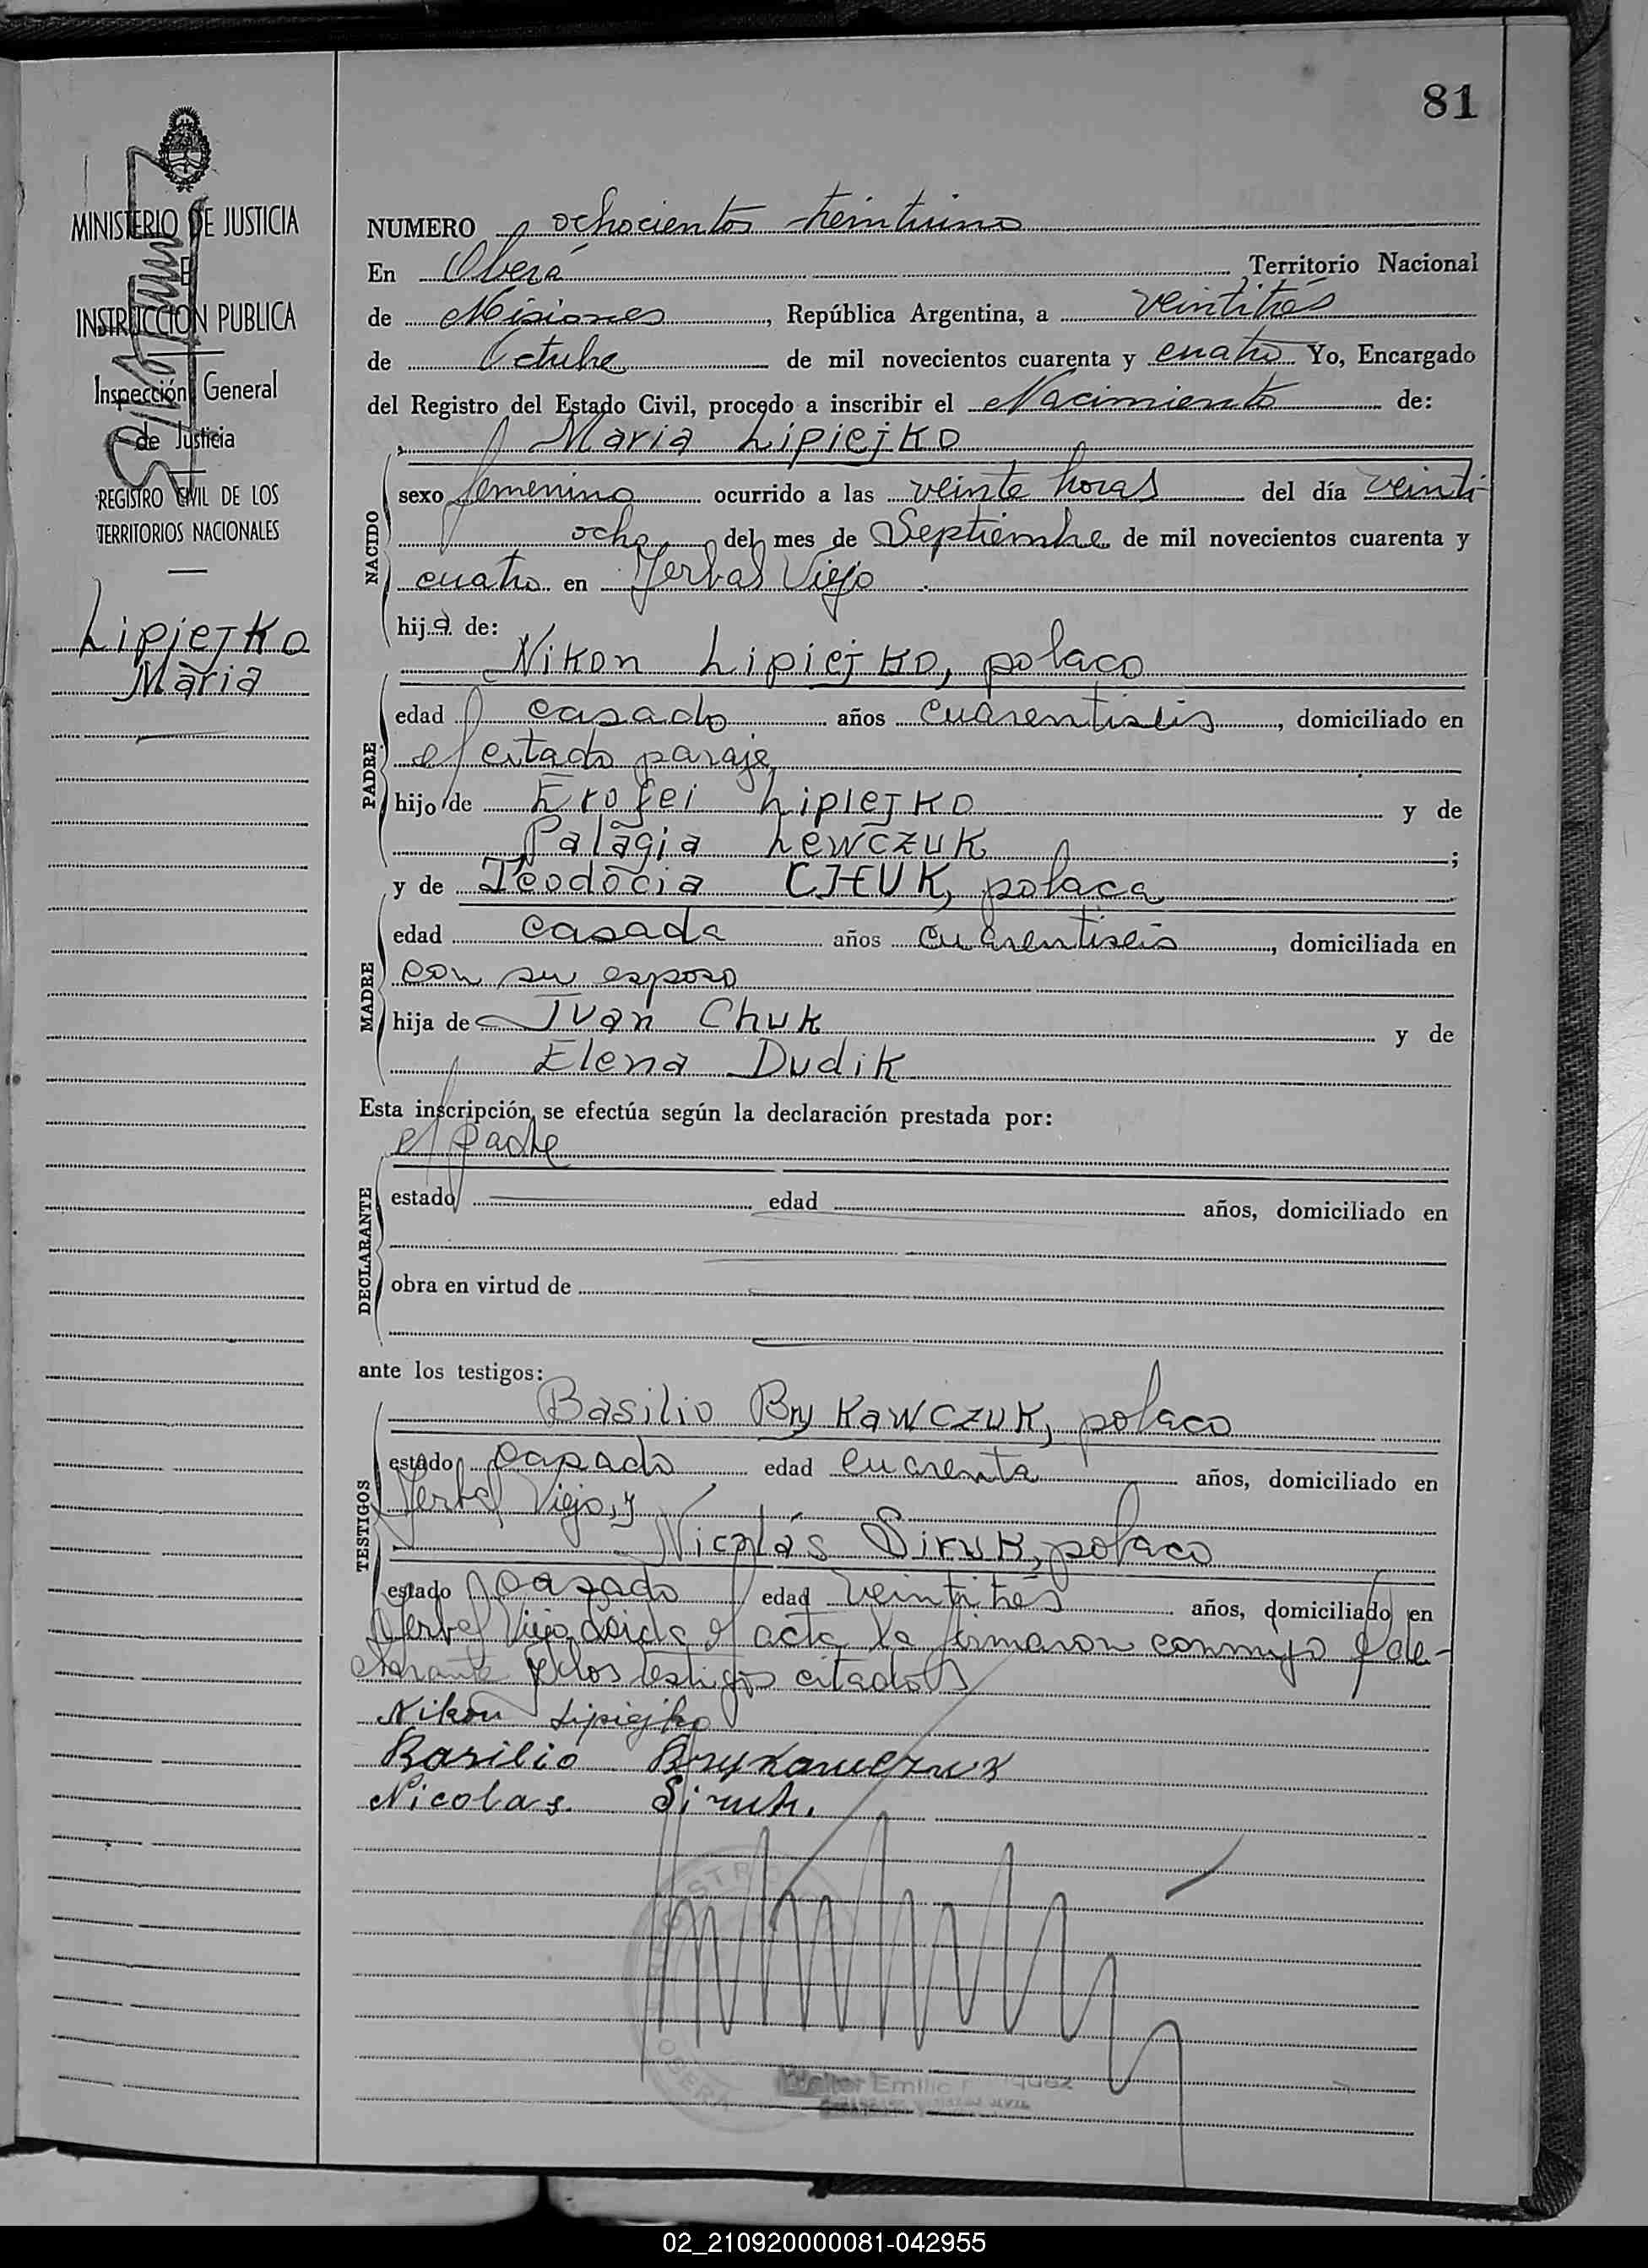 81
MINISTERIO DE JUSTICIA
E
INSTRUCCION PUBLICA
Inspección General
de Justicia
REGISTRO CIVIL DE LOS
TERRITORIOS NACIONALES
Lipiejko
Maria
NUMERO ochocientos treintiuno
En Oberá Territorio Nacional
de Misiones, República Argentina, a veintitrés
de Octubre de mil novecientos cuarenta y cuatro Yo, Encargado
del Registro del Estado Civil, procedo a inscribir el Nacimiento de:
Maria Lipiejko
NACIDO
sexo femenino ocurrido a las veinte horas del día veinti-
ocho del mes de Septiembre de mil novecientos cuarenta y
cuatro en Yerbal Viejo
hija de:
Nikon Lipiejko, polaco
PADRE
edad casado años cuarentiseis, domiciliado en
el citado paraje
hijo de Erofei Lipiejko y de
Palagia Lewczuk ;
y de Teodocia CHUK, polaca
MADRE
edad casada años cuarentiseis, domiciliada en
con su esposo
hija de Ivan Chuk y de
Elena Dudik
Esta inscripción se efectúa según la declaración prestada por:
el padre
DECLARANTE
estado edad años, domiciliado en
obra en virtud de
ante los testigos:
TESTIGOS
Basilio Brykawczuk, polaco
estado casado edad cuarenta años, domiciliado en
Yerbal Viejo, y
Nicolás Siruk, polaco
estado casado edad veintitrés años, domiciliado en
Yerbal Viejo. Leida el acta la firmaron conmigo el de-
clarante y los testigos citados
Nikon Lipiejko
Basilio Brykawczuk
Nicolas Siruk.
02_210920000081-042955